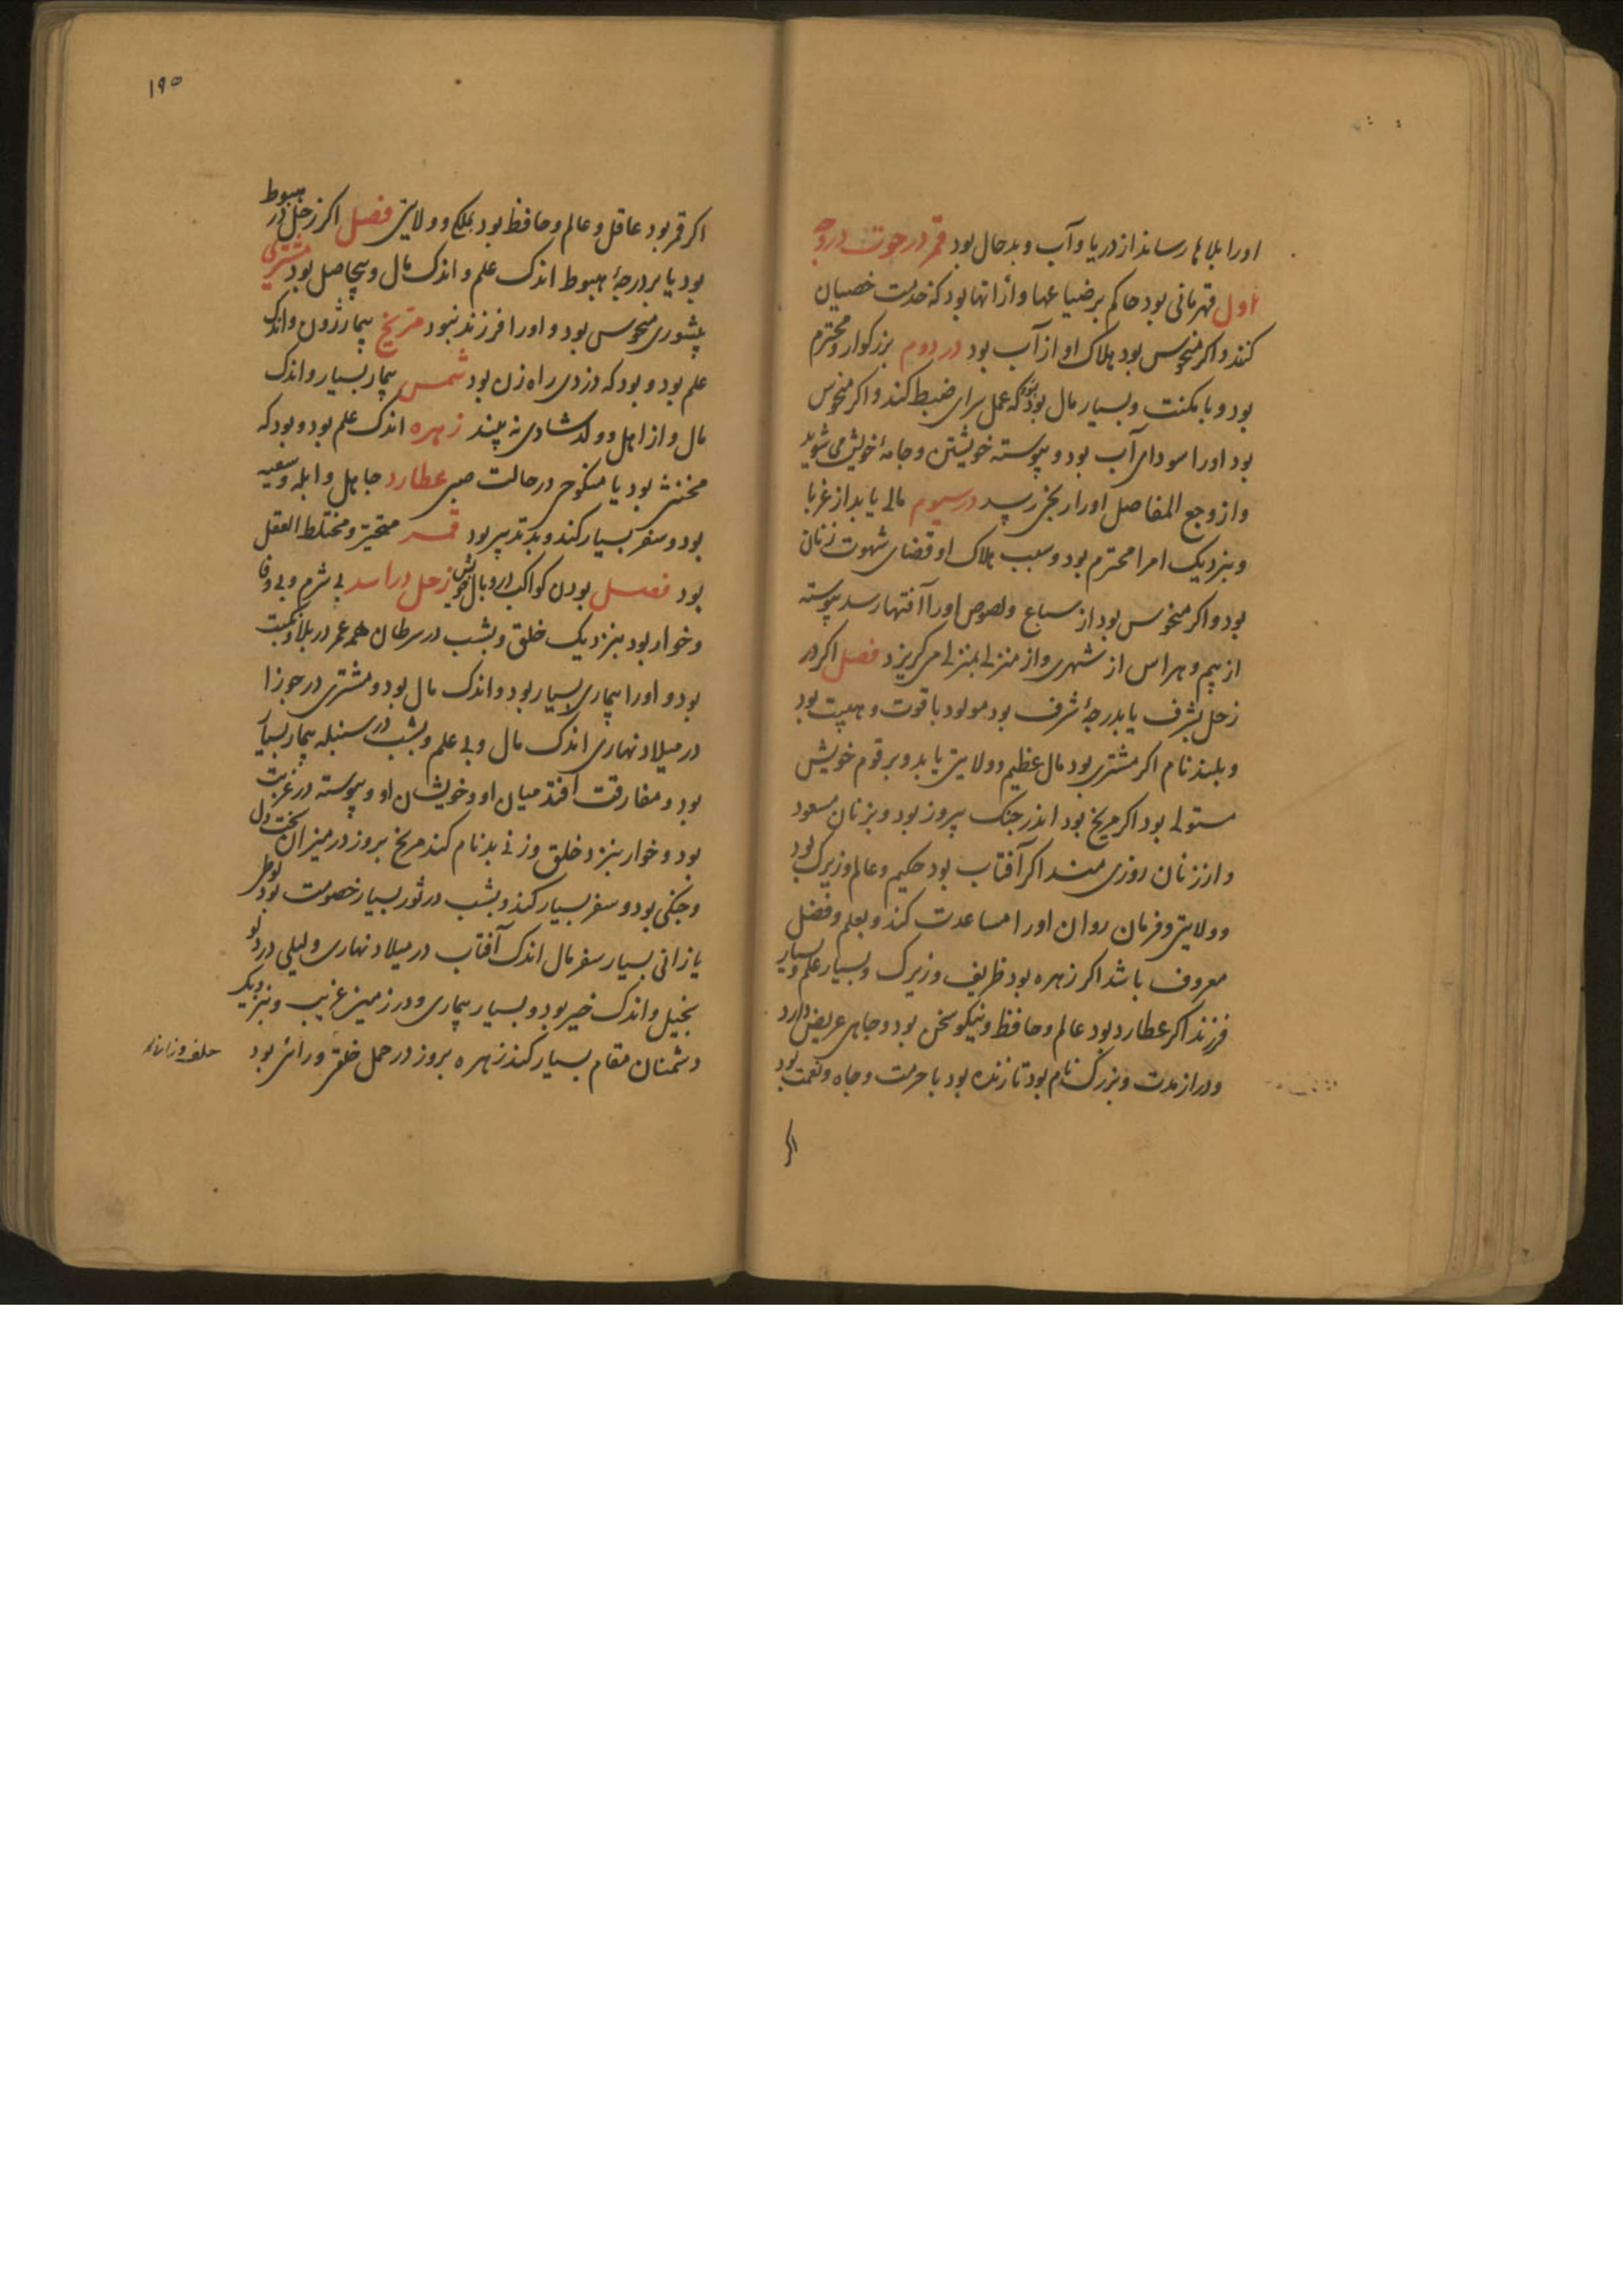 اورا بلاها رساند از دریا و آب و بدحال بود قمر در حوت در وجه
اول قهرمانی بود حاکم بر ضیاعها و از آنها بود که خدمت خصیان
کنند و اکر منحوس بود هلاک او از آب بود در دوم بزرکوار و محترم
بود و با مکنت و بسیار مال بود که عمل سرای ضبط کند و اکر منحوس
بود اورا سودای آب بود و پیوسته خویشتن و جامهٔ خویش می شوید
و از وجع المفاصل اورا رنجی رسد در سیوم مالی یابد از غربا
و بنزدیک امرا محترم بود و سبب هلاک او قضای شهوت زنان
بود و اکر منحوس بود از سباع و لصوص اورا آفتها رسد پیوسته
از بیم و هراس از شهری و از منزلی بمنزلی می کریزد فصل اکر در
زحل بشرف یا بدرجهٔ شرف بود مولود با قوت و هیبت بود
و بلند نام اکر مشتری بود مال عظیم و ولایتی یابد و بر قوم خویش
مستولی بود اکر مریخ بود اندر جنک پیروز بود و بزنان مسعود
و از زنان روزی مند اکر آفتاب بود حکیم و عالم و زیرک بود
و ولایتی و فرمان روان اورا مساعدت کند و بعلم و فضل
معروف باشد اکر زهره بود ظریف و زیرک و بسیار علم و بسیار
فرزند اکر عطارد بود عالم و حافظ و نیکو سخن بود و جاهی عریض دارد
و دراز مدت و بزرک نام بود تا زنده بود با حرمت و جاه و نعمت بود
اکر
١٩٥
اکر قمر بود عاقل و عالم و حافظ بود بملکی و ولایتی فصل اکر زحل در هبوط
بود یا بر درجهٔ هبوط اندک علم و اندک مال و بیحاصل بود مشتری
پیشوری منحوس بود و اورا فرزند نبود مریخ بیمار زون و اندک
علم بود و بود که دزدی راه زن بود شمس بیمار بسیار و اندک
مال و از اهل و ولد شادی نه بیند زهره اندک علم بود و بود که
مخنث بود یا منکوح در حالت صبی عطارد جاهل و ابله و سفیه
بود و سفر بسیار کند و بد تدبیر بود قمر متحیر و مختلط العقل
بود فصل بودن کواکب در وبال خویش زحل در اسد بی شرم و بی وفا
و خوار بود بنزدیک خلق و بشب در سرطان همه عمر در بلا و نکبت
بود و اورا بیماری بسیار بود و اندک مال بود و مشتری در جوزا
در میلاد نهاری اندک مال و بی علم و بشب در سنبله بیمار بسیار
بود و مفارقت افتد میان او و خویشان او و پیوسته در غربت
بود و خوار بنزد خلق و زنی بدنام کند مریخ بروز در میزان سخت دل
و جنکی بود و سفر بسیار کند و بشب در ثور بسیار خصومت بود لوطی
یا زانی بسیار سفر مال اندک آفتاب در میلاد نهاری و لیلی در دلو
بخیل و اندک خیر بود و بسیار بیماری و در زمین غریب و بنزدیک
دشمنان مقام بسیار کند زهره بروز در حمل خلقی و رانی بود